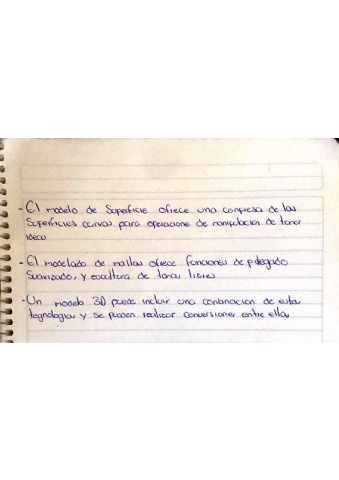 - El modelo de Superficie ofrece una compresa de las
Superficies curvas para operacione de manipulacion de
ideas
- El modelado de mallas ofrece funciones de plegado
Suavizado, y escultura de libres
- Un modelo 3D puede incluir una conbinacion de estas
tegnologias y se pueden realizar conversiones entre ellas